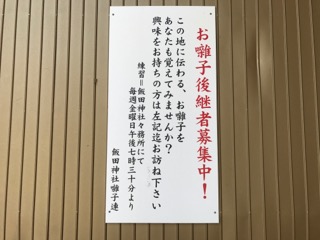 お囃子後継者募集中！
この地に伝わる、お囃子を
あなたも覚えてみませんか？
興味をお持ちの方は左記迄お訪ね下さい
練習＝飯田神社々務所にて
毎週金曜日午後七時三十分より
飯田神社囃子連